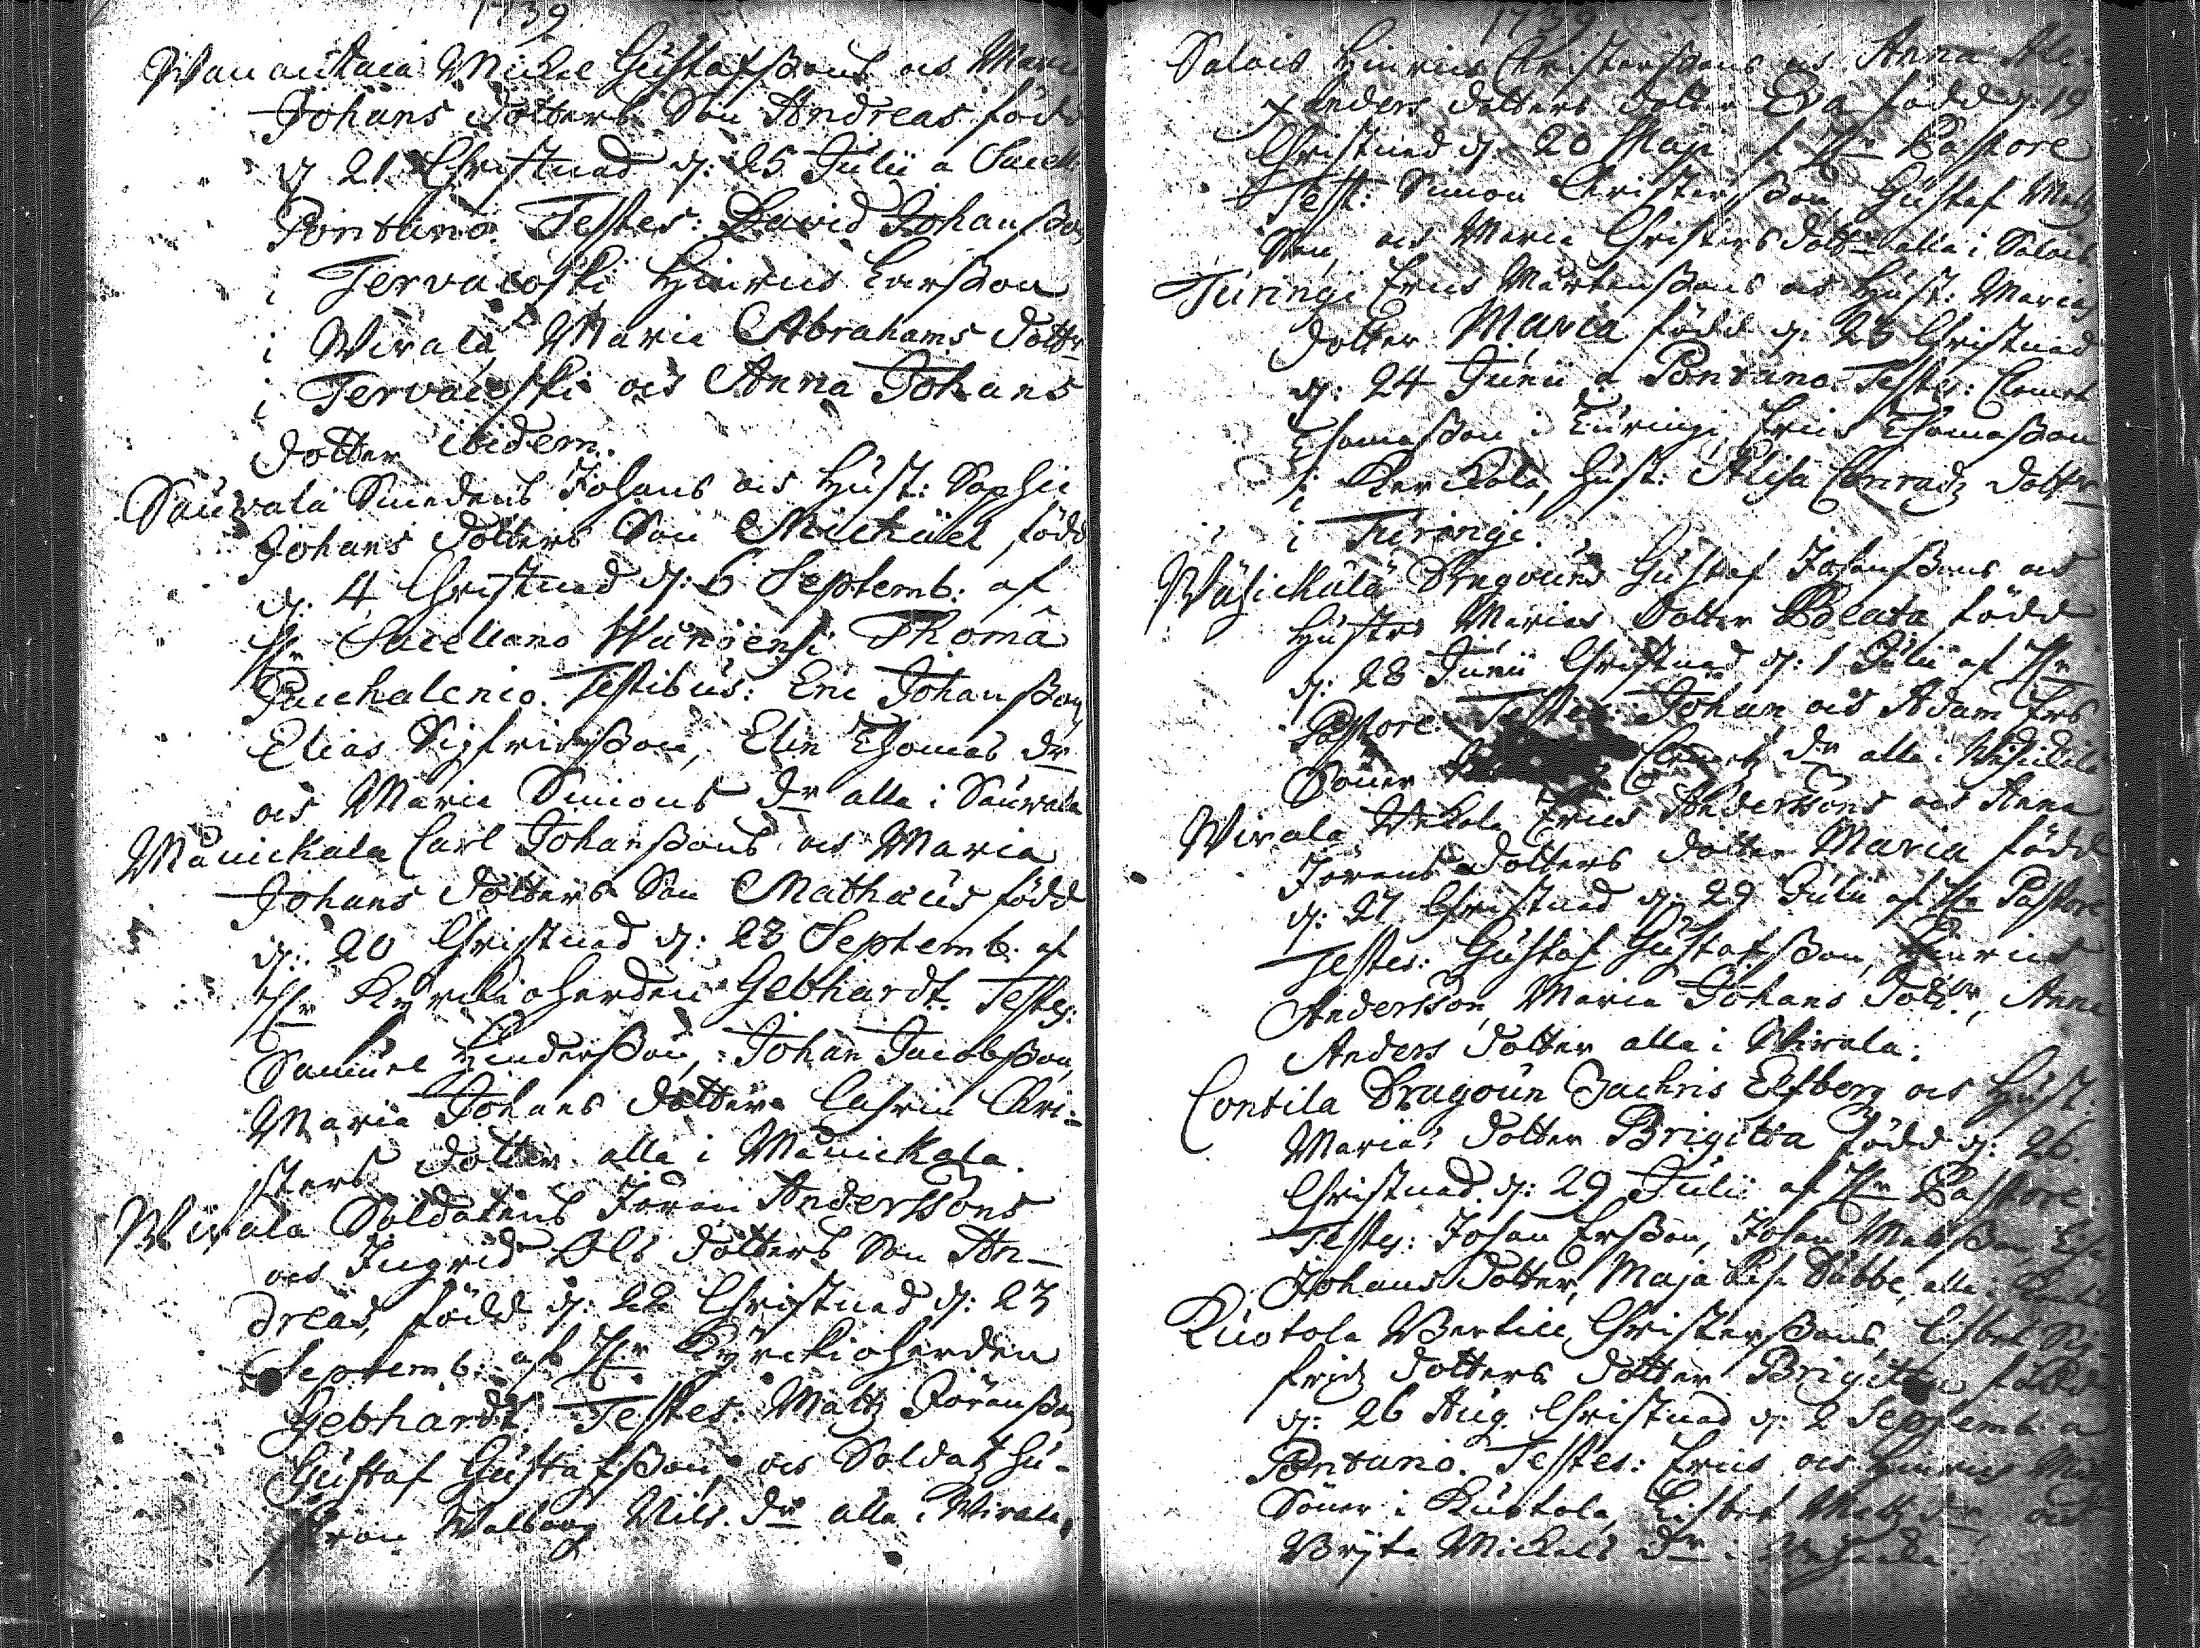 1739
Wanantaca Michel Gustafssons och Maria
Johans dotters Son Andreas född
d. 21 Christnad d: 25 Julii a Sacell
Pontano. Testes: David Johansson
i Tervacoski Hinric Ersson
i Wirala Maria Abrahams dotter
i Tervacoski och Anna Johans
dotter ibidem.
Sauvala Smedens Johans och Hust: Sophia
Johans dotters Son Michäel, född
d. 4 Christnad d: 6 Septemb: af
Hr Sacellano Thoma
Pacchalenio. Testibus: Eric Johansson
Elias Sigfridsson, Elin Thomas dr
och Maria Simons dr alla i Sauvala
Manickala Carl Johanssons och Maria
Johans dotters Son Mathæus född
d: 20 Christnad d: 23 Septemb. af
Hr Kyrckioherden Gebhardt. Testes:
Samuel Hindersson, Johan Jacobsson,
Maria Johans dotter Cahrin Chri-
sters dotter alla i Manickala.
Wirala Soldatens Jöran Anderssons
och Ingrid Ols dotters Son An-
dreas, född d: 22 Christnad d: 23
Septemb: af Hr Kyrckioherden
Gebhardt Testes: Matts Jöransson
Gustaf Gustafsson, och Soldatz hu-
stron Walborg Nils dr alla i Wirala.
1739
Salois Hinric Christerssons och Anna
Anders dotters dotter Eva född d. 19
Christnad d. 20 Maji af Hr Pastore
Test: Simon Christersson, Gustaf Matts
Son, och Maria Christers dotter alla i Salois
Turingi Eric Mårtenssons och Hust: Marias
dotter Maria född d. 23 Christnad
d: 24 Junii a Pontano. Testes: Clemet
Thomasson i Turingi, Eric Thomasson
i Kerckola, Hust: Alisa Conradz dotter
i Turingi.
Wähickälä Dragouns Gustaf Johanssons och
Hustro Marias Dotter Beata född
d: 28 Junii Christnad d: 1 Julii af Hr
Pastore. Testes: Johan och Adam Ers
Söner Clemetz dr alla i
Wirala Eric Anderssons och Anna
Jörans dotters dotter Maria född
d: 27 Christnad d: 29 Julii af Hr Pastore
Testes: Gustaf Gustafsson, Hinric
Andersson, Maria Johans dotter, Anna
Anders dotter alla i Wirala.
Contila Dragoun Zachris Elfborg och Hust:
Marias dotter Brigitta född d: 26.
Christnad d: 29 Julii af Hr Pastore
Testes: Johan Ersson, Johan Mattsson,
Johans dotter, Maja alla i
Kuotola Bertill Christerssons, Lisbet Sig-
fridz dotters dotter Brigitta född
d: 26 Aug. Christnad d: 2 Septemb. a
Pontano. Testes: Eric och Hinric
Söner i Kuotola, Lisbet Matts dr och
Brijta Mickels dr i